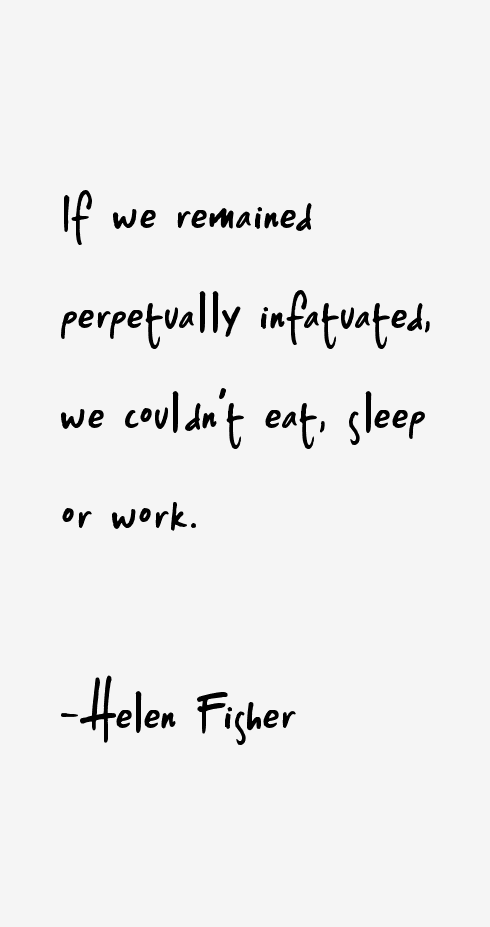 If we remained
perpetually infatuated,
we couldn't eat, sleep
or work.
-Helen Fisher